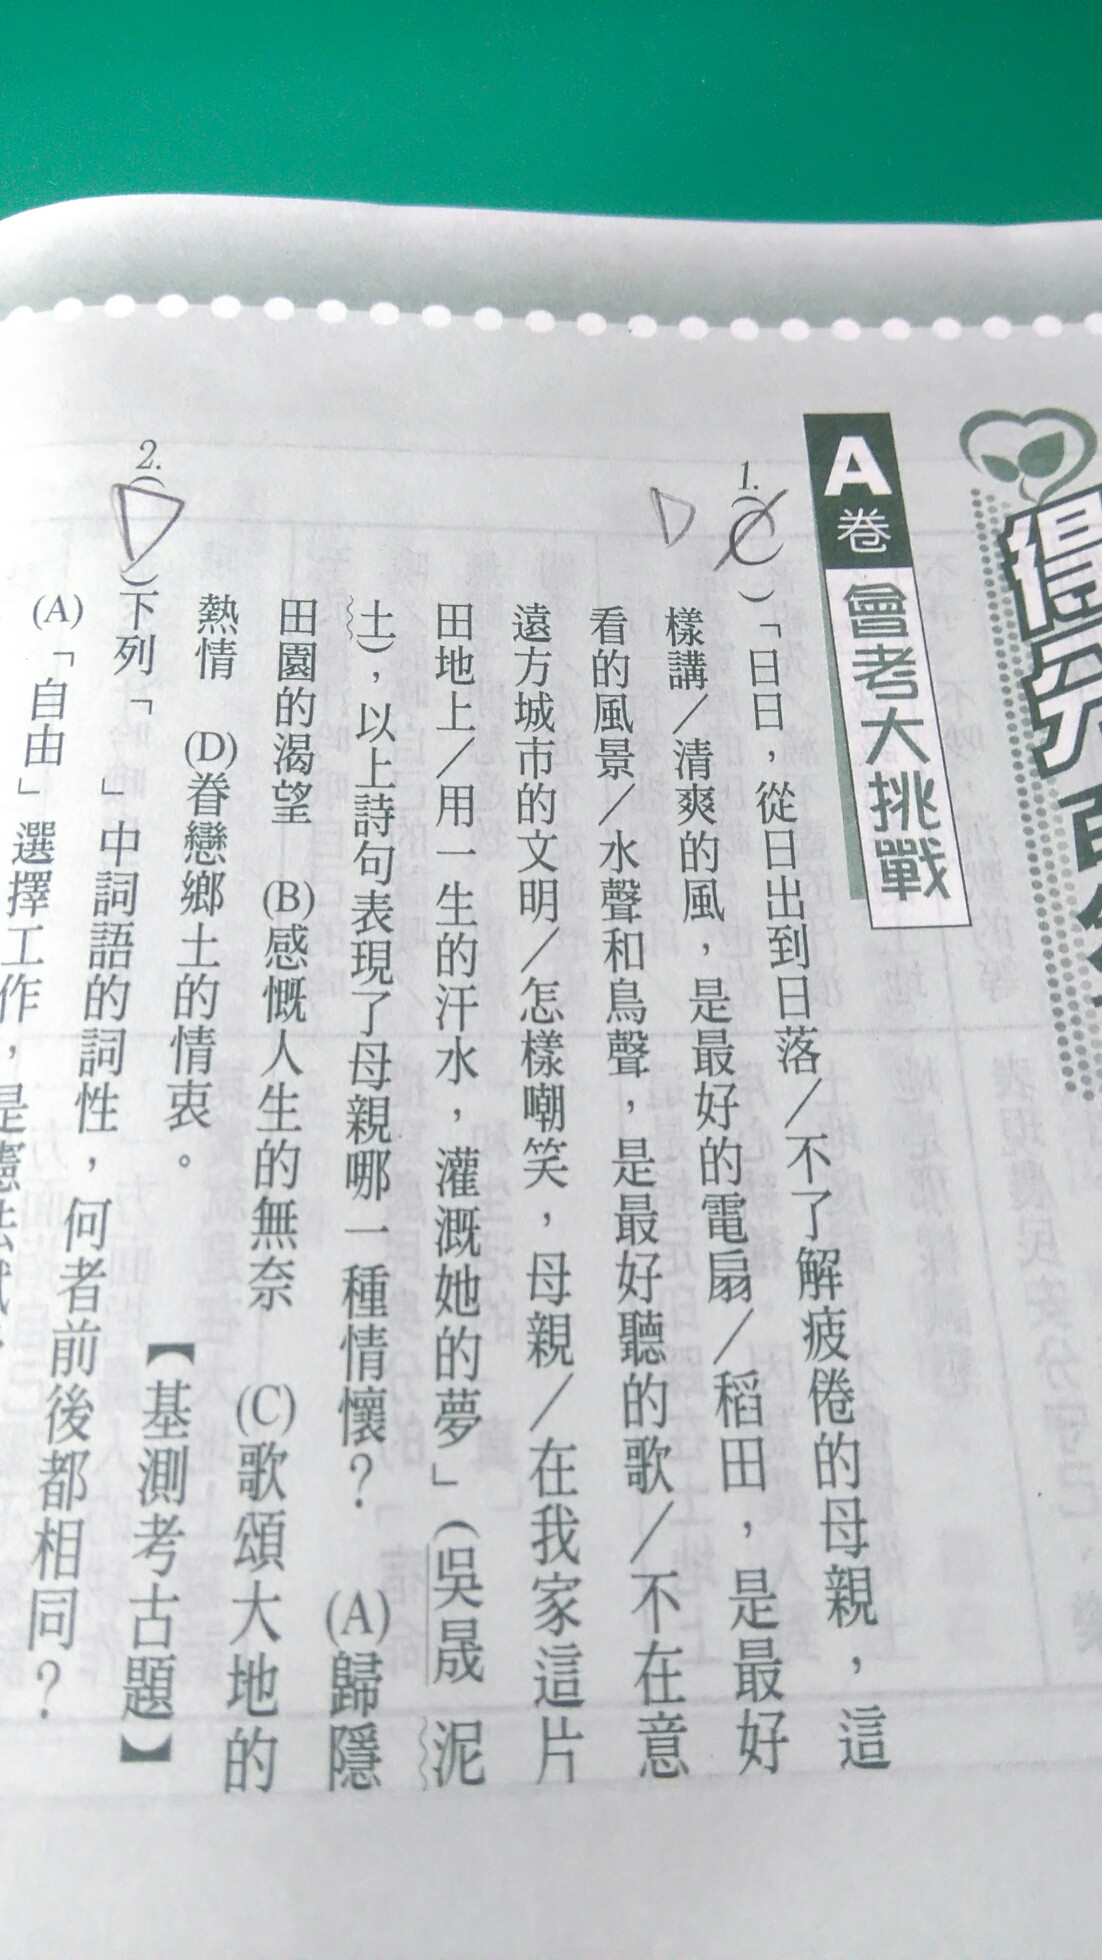 得分
A卷 會考大挑戰
1.(C)「日日，從日出到日落／不了解疲倦的母親，這
D
樣講／清爽的風，是最好的電扇／稻田，是最好
看的風景／水聲和鳥聲，是最好聽的歌／不在意
遠方城市的文明／怎樣嘲笑，母親／在我家這片
田地上／用一生的汗水，灌溉她的夢」（吳晟 泥
土），以上詩句表現了母親哪一種情懷？ (A)歸隱
田園的渴望 (B)感慨人生的無奈 (C)歌頌大地的
熱情 (D)眷戀鄉土的情衷。 【基測考古題】
2.(D)下列「 」中詞語的詞性，何者前後都相同？
(A)「自由」選擇工作，是憲法